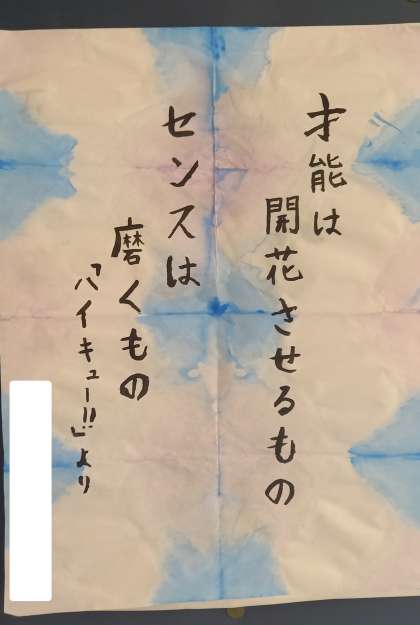 才能は
開花させるもの
センスは
磨くもの
「ハイキュー!!」より